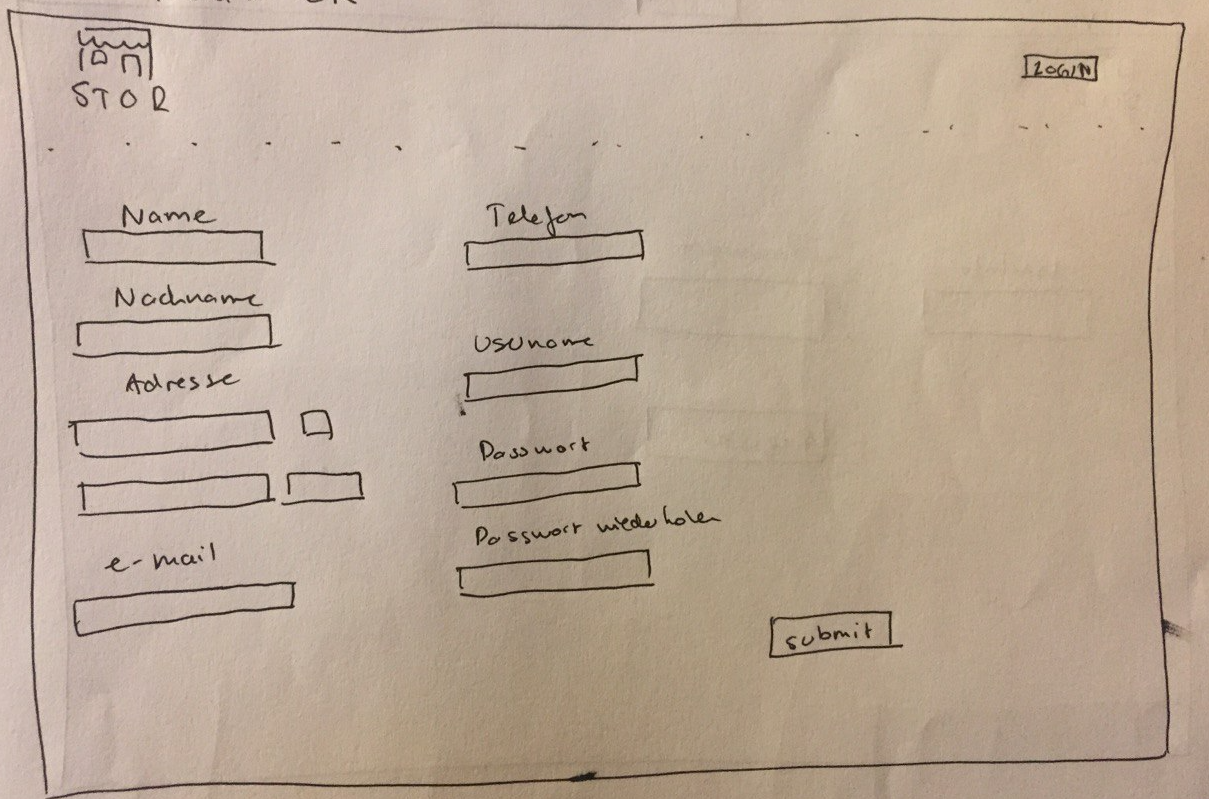 STOR
LOGIN
Name
Nachname
Adresse
e-mail
Telefon
Username
Passwort
Passwort wiederholen
submit